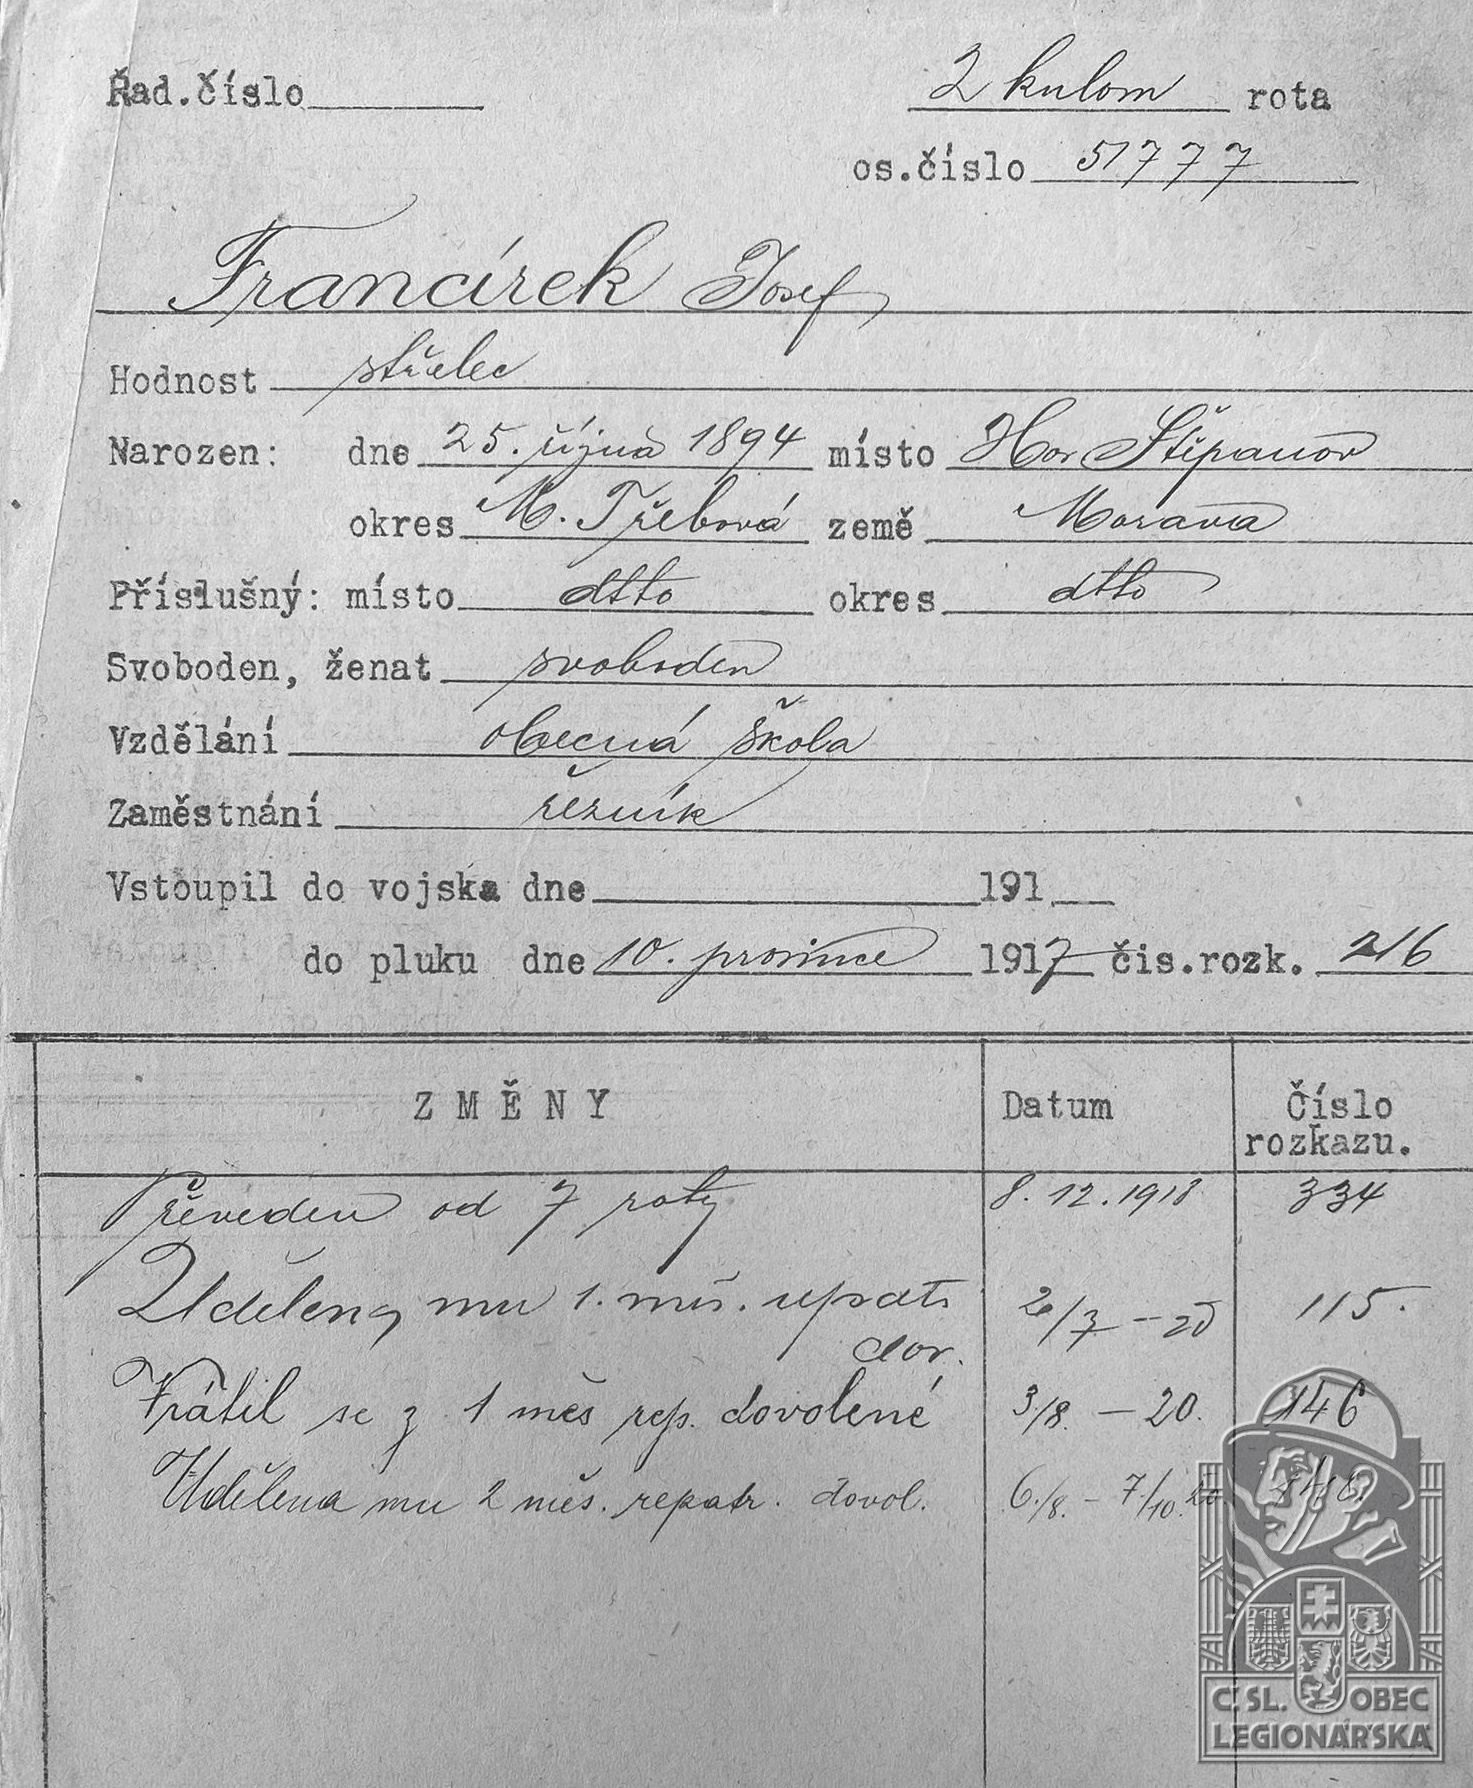 Řad.číslo
2 kulom rota
os.číslo 51777
Francírek Josef
Hodnost střelec
Narozen: dne 25. října 1894 místo Hor Štěpanov
okres M. Třebová země Morava
Příslušný: místo dtto okres dtto
Svoboden, ženat svoboden
Vzdělání obecná škola
Zaměstnání řezník
Vstoupil do vojska dne 191
do pluku dne 10. prosince 1917 čis.rozk. 216
ZMĚNY Datum Číslo
rozkazu.
Převeden od 7 roty 8.12.1918 334
Udělena mu 1. měs. 2/7 - 20 115.
dov.
Vrátil se z 1 měs rep. dovolené 3/8. - 20. 146
Udělena mu 2 měs. repatr. dovol. 6./8. - 7/10. 20
Č. SL. OBEC
LEGIONÁŘSKÁ